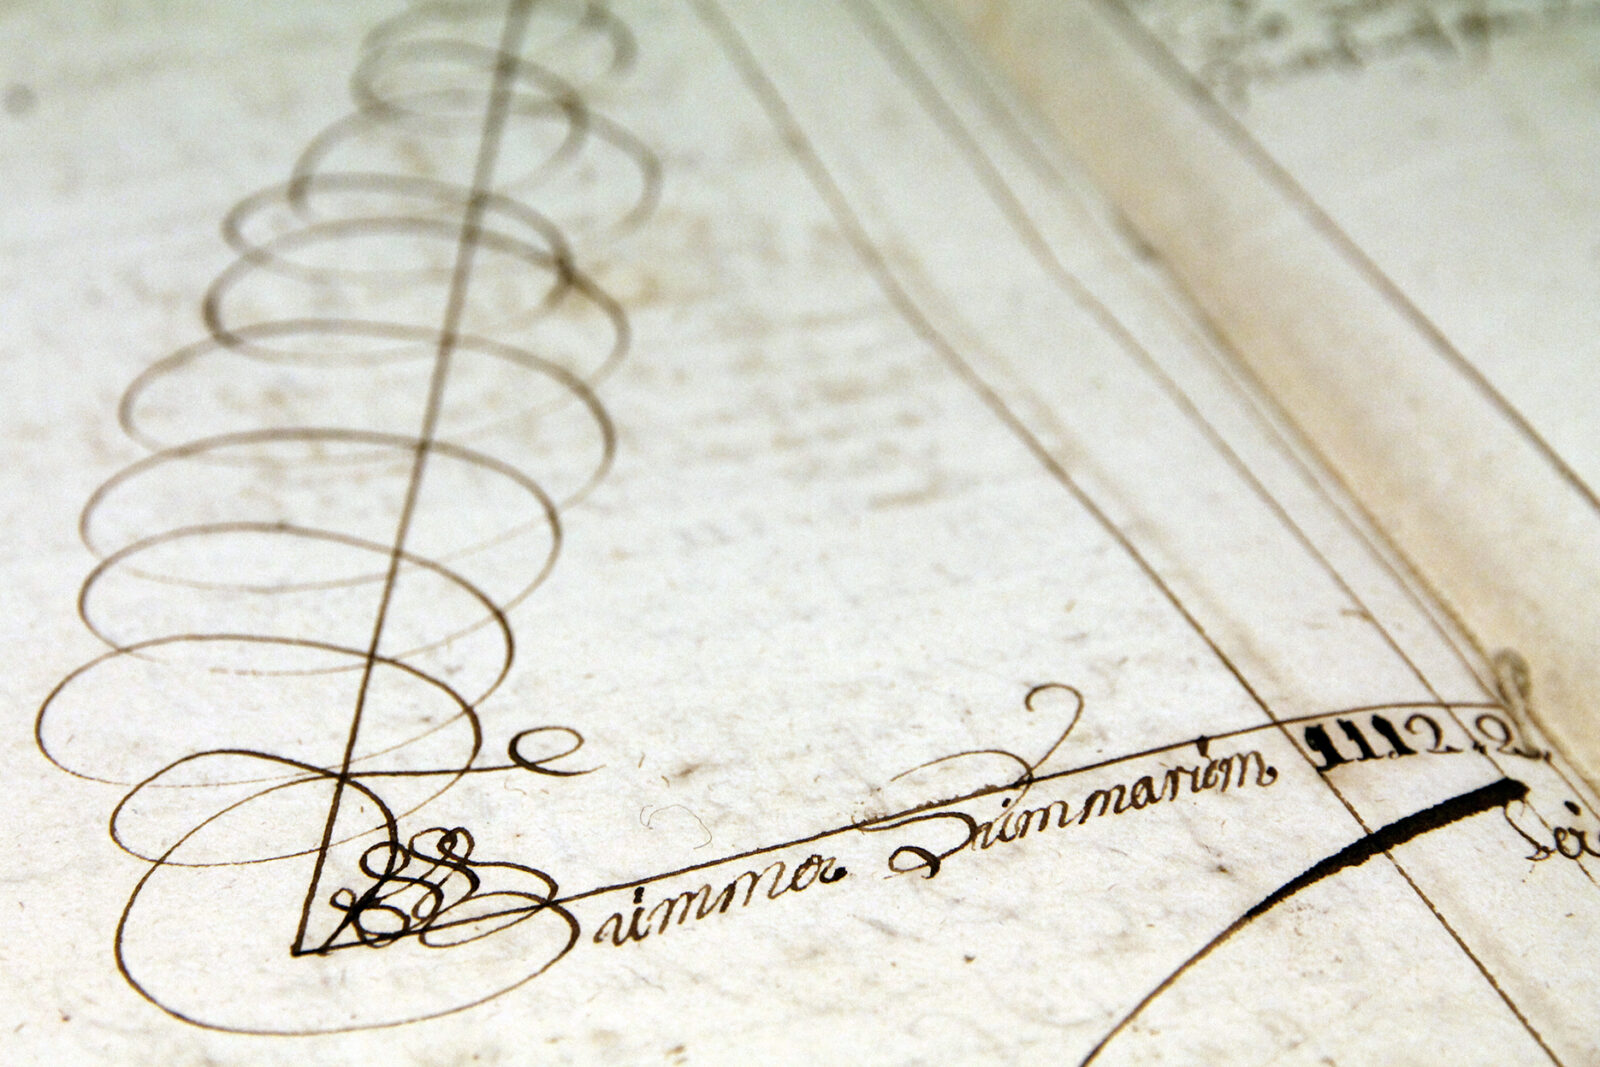 Summa Summarum 1112. 2.